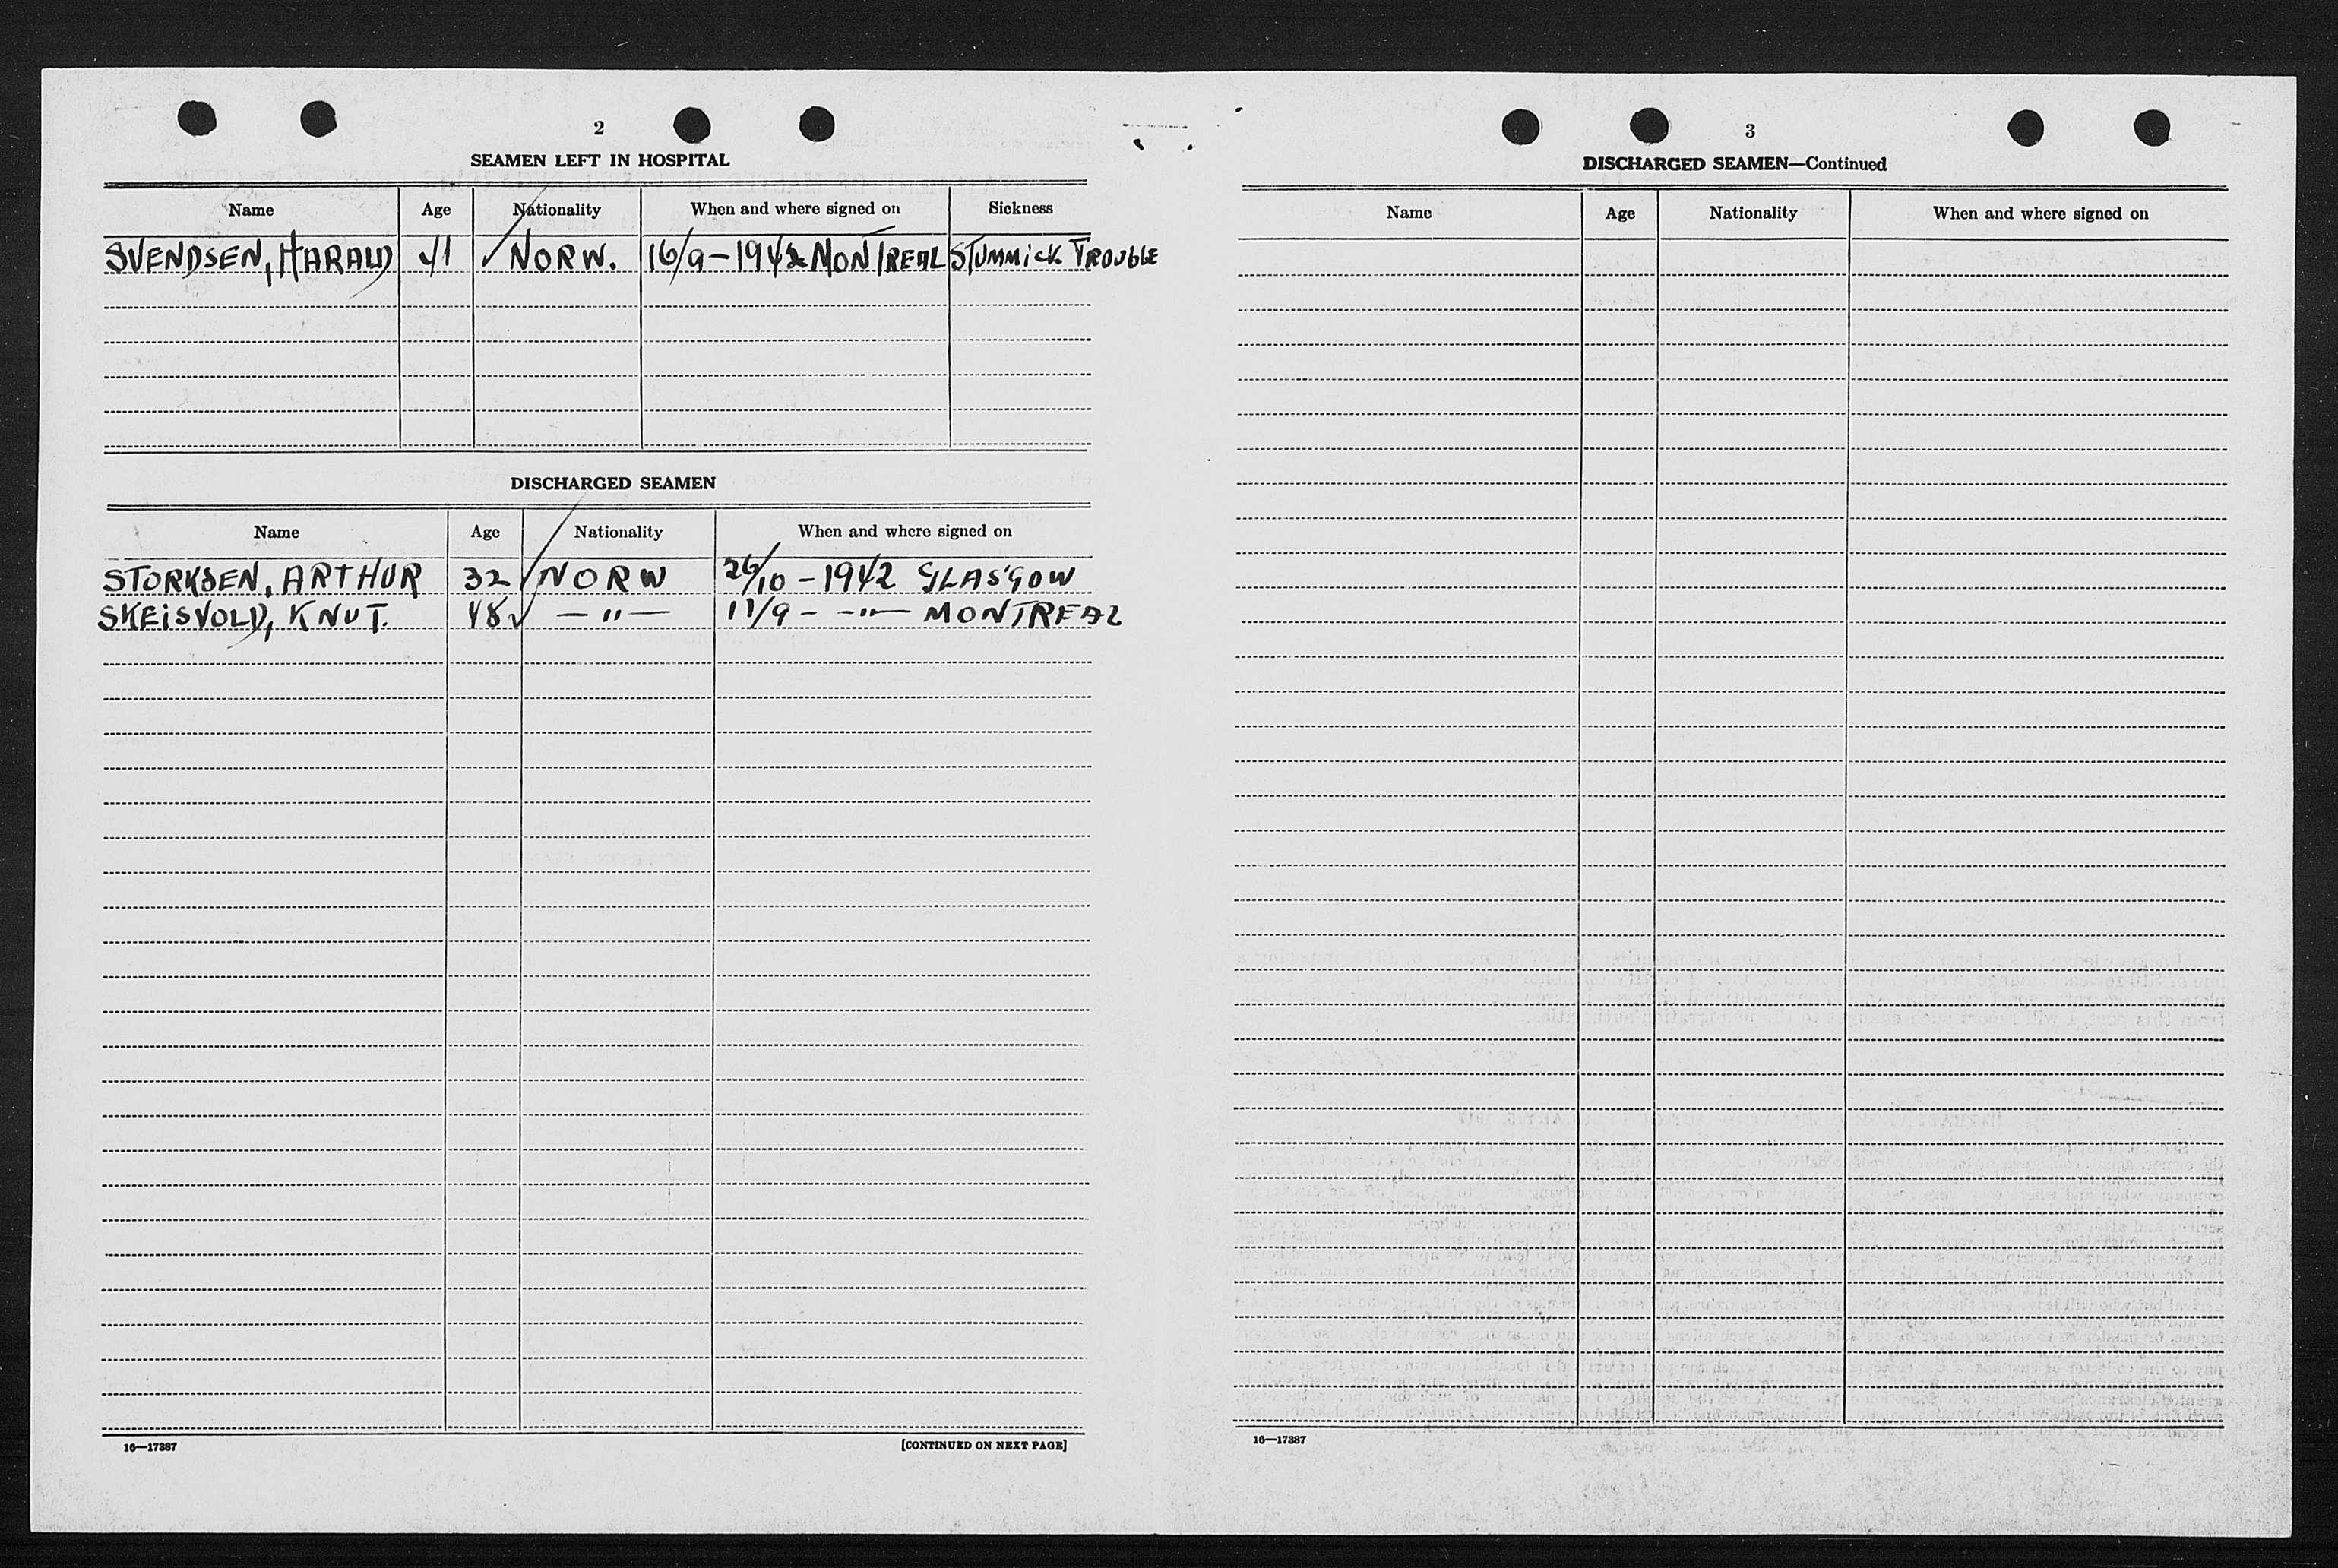 2
SEAMEN LEFT IN HOSPITAL
Name Age Nationality When and where signed on Sickness
SVENDSEN, HARALD 41 NORW. 16/9-1942 MONTREAL STUMMICK TROUBLE
DISCHARGED SEAMEN
Name Age Nationality When and where signed on
STORKSEN, ARTHUR 32 NORW 26/10-1942 GLASGOW
SKEISVOLD, KNUT. 48 —"— 11/9- -"- MONTREAL
16—17387 [CONTINUED ON NEXT PAGE]
3
DISCHARGED SEAMEN—Continued
Name Age Nationality When and where signed on
16—17387